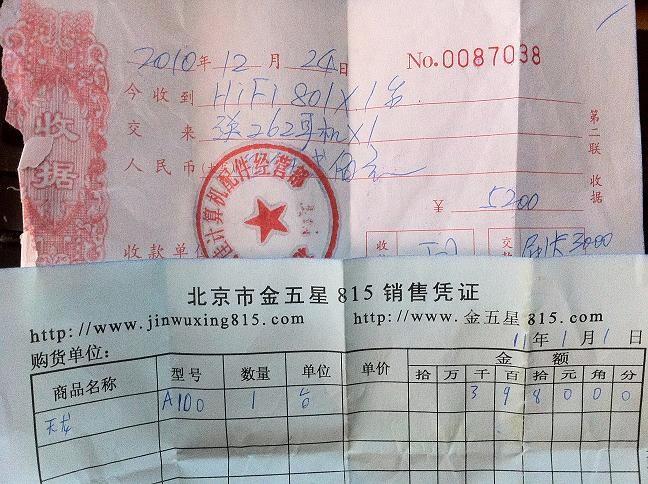 收据
2010年12月24日 No.0087038
今收到 HiFi 801 X 1台
交来 送262耳机X1
人民币
¥ 5200
第二联 收据
计算机配件经营部
收款单
刷卡3000
北京市金五星 815 销售凭证
http://www.jinwuxing815.com http://www.金五星815.com
11年1月1日
购货单位：
商品名称 型号 数量 单位 单价 金额
拾 万 千 百 拾 元 角 分
天龙 A100 1 台 3 9 8 0 0 0